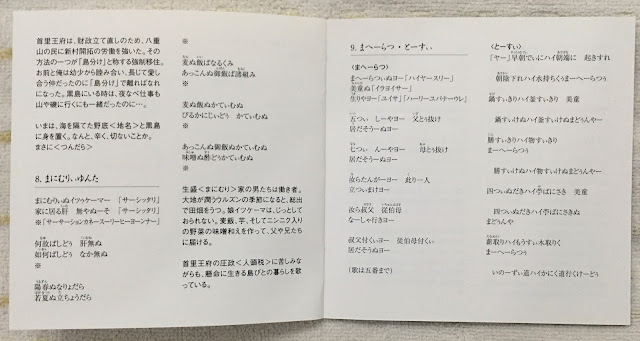 首里王府は、財政立て直しのため、八重
山の民に新村開拓の労働を強いた。その
方法の一つが「島分け」と称する強制移住。
お前と俺は幼少から睦み合い、長じて愛し
合う仲だったのに「島分け」で離ればなれ
になった。黒島にいる時は、夜なべ仕事も
山や磯に行くにも一緒だったのに…。
いまは、海を隔てた野底<地名>と黒島
に身を置く。なんと、辛く、切ないことか。
まさに<つんだら>
8. まにむりぃゆんた
まにむりぃぬイツゥケーマー 「サーシッタリ」
家に居る肝 無やぬーそ 「サーシッタリ」
※「サーサーションカネースーリーヒーヨーンナー」
何故ばしどぅ 肝無ぬ
如何ばしどぅ なか無ぬ
※
陽春ぬなりょだら
若夏ぬ立ちょうだら
※
麦ぬ飯ばなるくみ
あっこんぬ御飯ば諸組み
※
麦ぬ飯ぬかていむぬ
びるかにじぃどぅ かていむぬ
※
あっこんぬ御飯ぬかていむぬ
味噌ぬ酢どぅかていむぬ
生盛<まにむりぃ>家の男たちは働き者。
大地が潤うウルズンの季節になると、総出
で田畑をうつ。娘イツゥケーマは、じっとして
おられない。麦飯、芋、そしてニンニク入り
の野菜の味噌和えを作って、父や兄たち
に届ける。
首里王府の圧政<人頭税>に苦しみな
がらも、懸命に生きる島びとの暮らしを歌
っている。
9. まへーらつ・とーすぃ
<まへーらつ>
まへーらつぃぬヨー「ハイヤースリー」
美童ぬ「イラヨイサー」
生りやヨー「ユイサ」「ハーリーユバナーウレ」
五つぃ しーやヨー 父とぅ抜け
居だそうーぬヨー
七つぃ んーやヨー 母とぅ抜け
居だそうーぬヨー
汝らたんがーヨー 此り一人
立つぃまいけヨー
汝ら叔父 従伯母
なーしゃ行きヨー
叔父付くぃヨー 従伯母付くぃ
居だそうぬヨー
(歌は五番まで)
<とーすぃ>
「ヤー」早朝でぃにハイ朝端に 起きすれ
朝陰下れハイ水持ちくぅまーへーらつぅ
鍋すぃきりハイ釜すぃきり 美童
鍋すぃけぬハイ釜すぃけぬまどぅんやー
膳すぃきりハイ物すぃきり
まーへーらつぅ
膳すぃけぬハイ物すぃけぬまどぅんやー
四つぃぬだきハイ苧ばにさき 美童
四つぃぬだきハイ苧ばにさきぬ
まどぅんや
薪取りハイもうすぃ木取りく
まーへーらつぅ
いのーずぃ道ハイかにく道行くけーどぅ